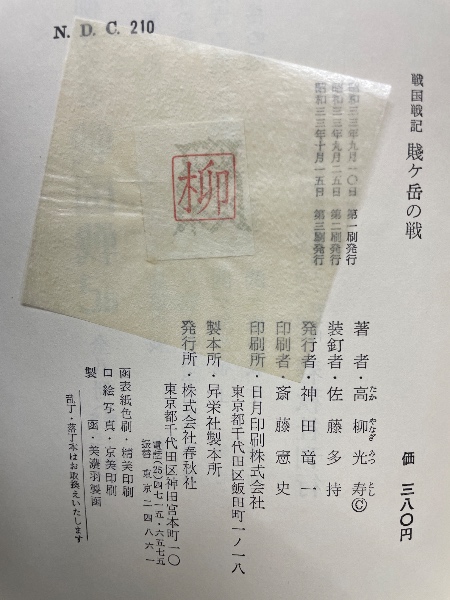 N. D. C. 210
戦国戦記 賤ケ岳の戦
価 三八〇円
昭和三三年九月一〇日 第一刷発行
昭和三三年九月二五日 第二刷発行
昭和三三年十月一五日 第三刷発行
柳
著者・高柳光寿©
たか やなぎ みつ とし
装釘者・佐藤多持
発行者・神田竜一
印刷者・斎藤憲史
印刷所・日月印刷株式会社
東京都千代田区飯田町一ノ一八
製本所・昇栄社製本所
発行所・株式会社春秋社
東京都千代田区神田宮本町一〇
電話(25)四七一五・六五七五
振替東京二四八六一
函表紙色刷・精美印刷
口絵写真・京美印刷
製函・美濃羽製函
乱丁・落丁本はお取換えいたします